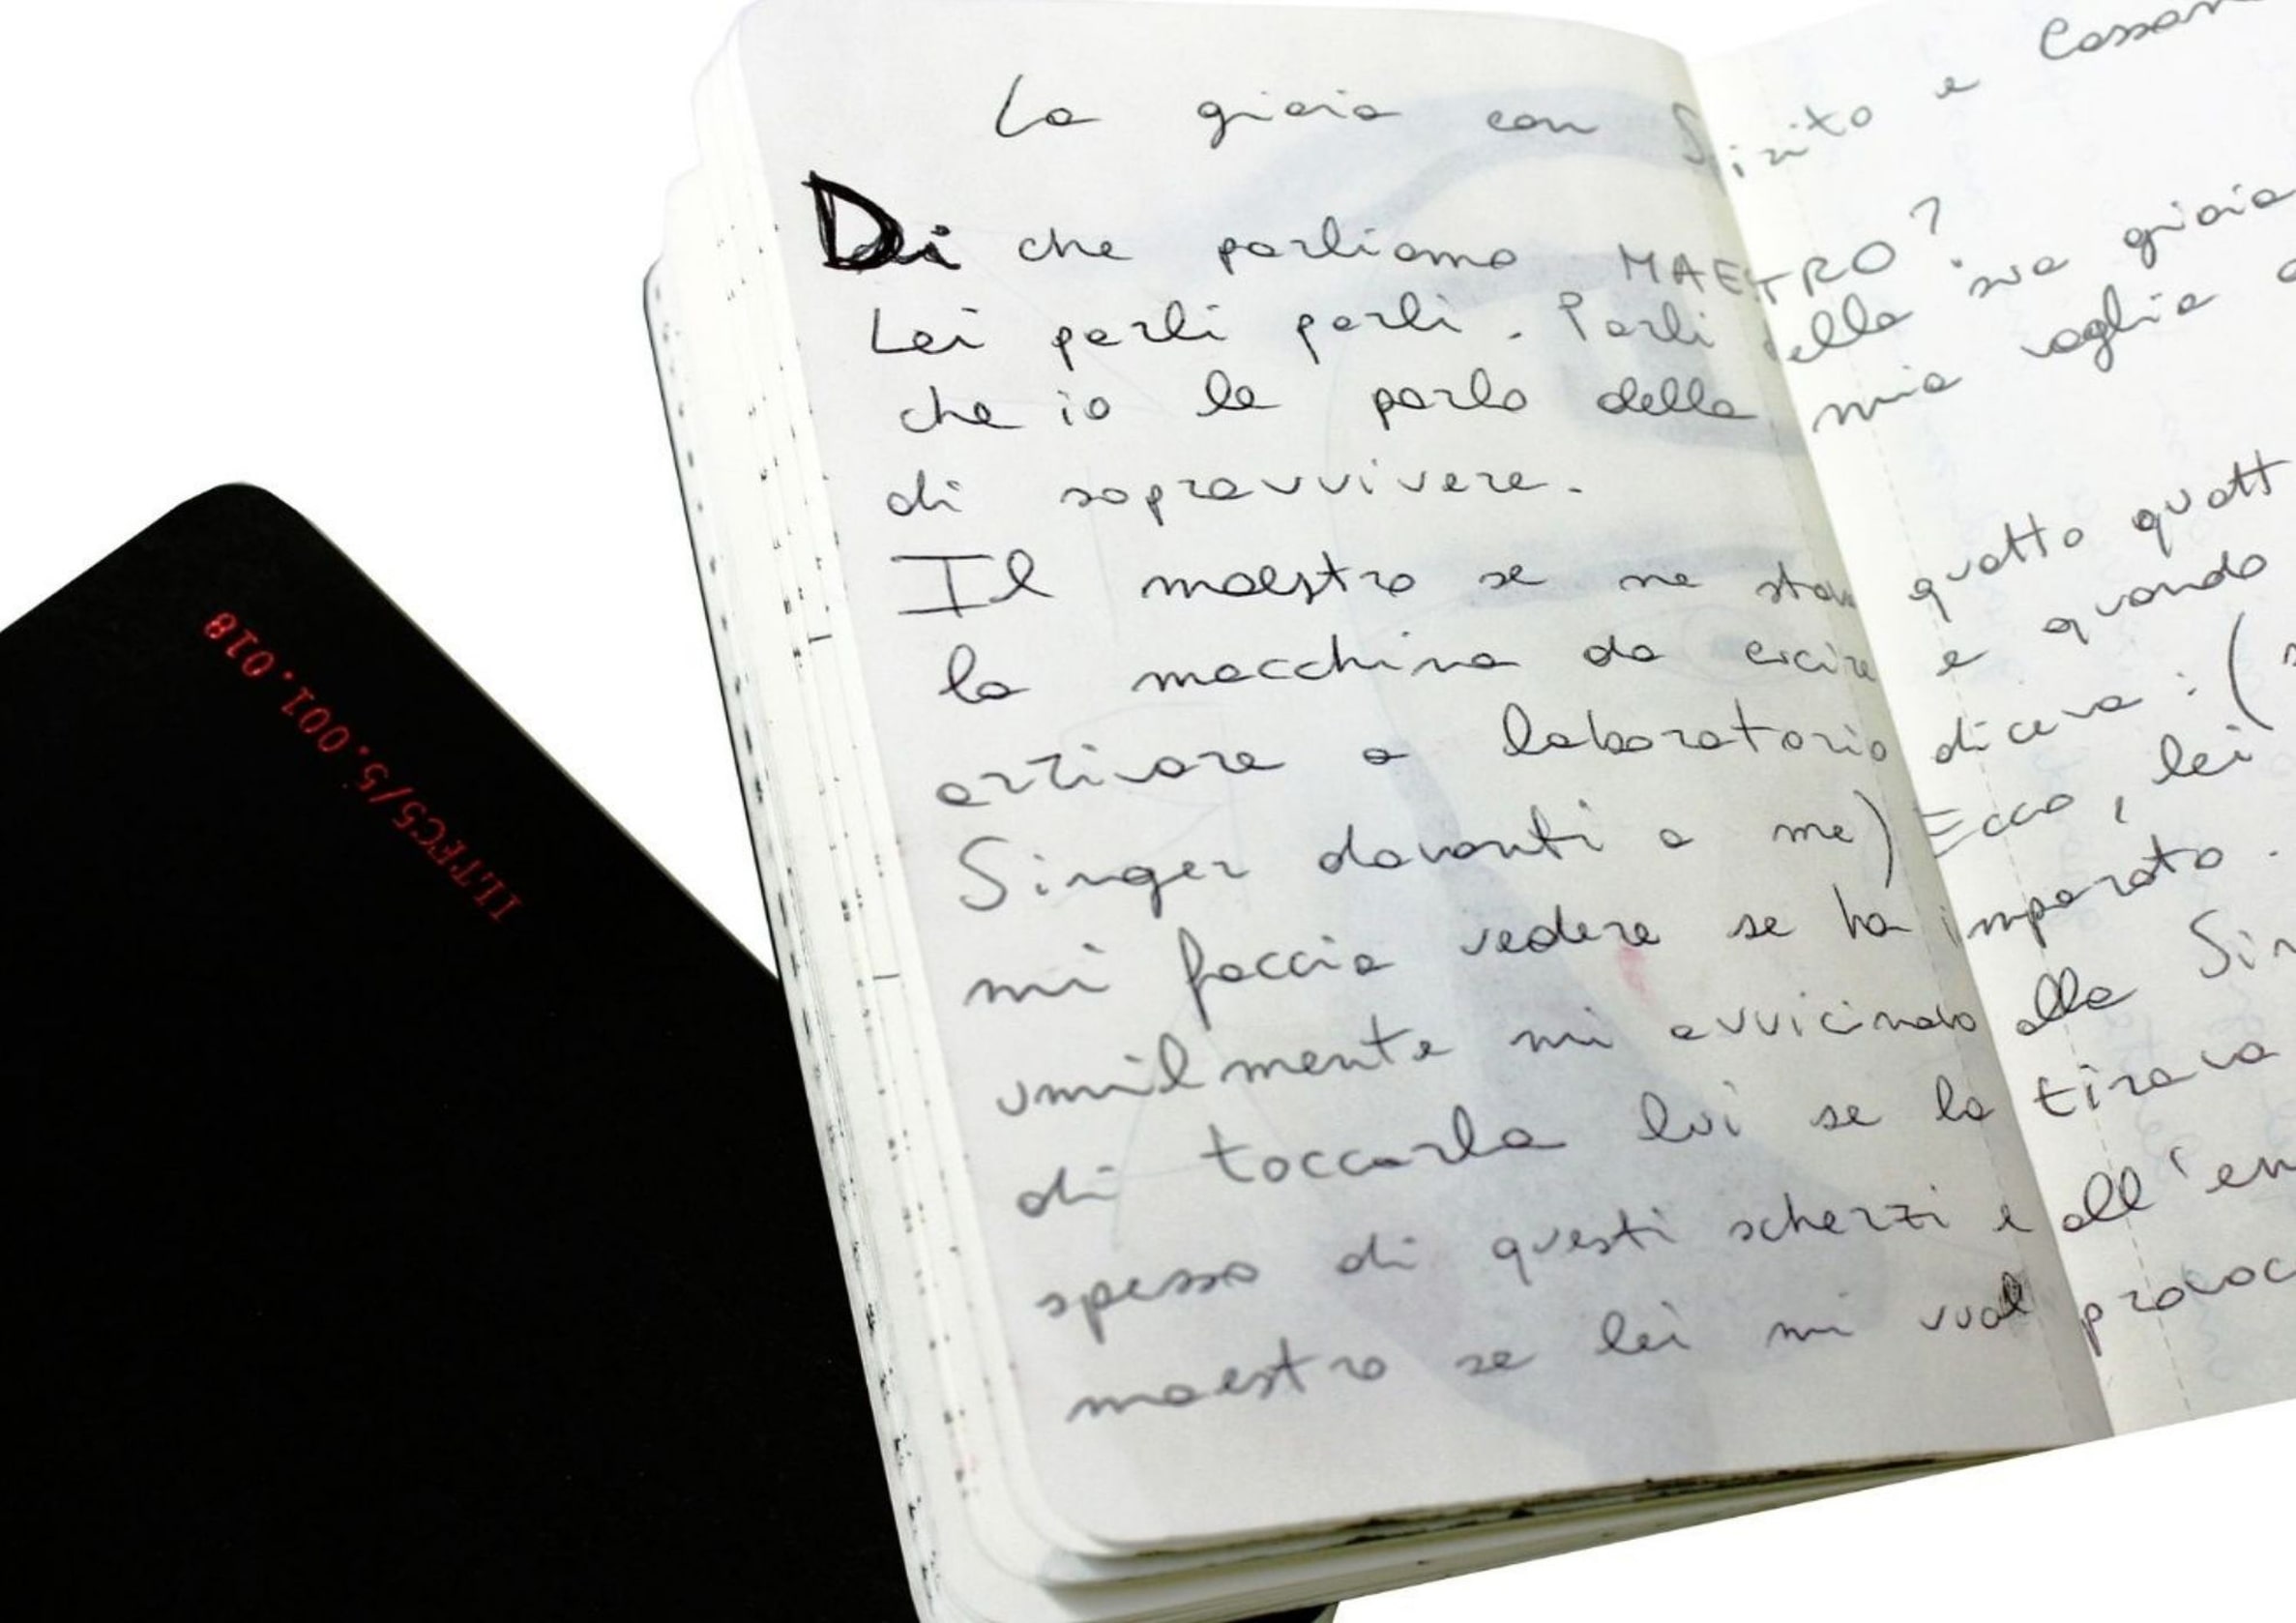 La gioia con Spirito e
Di che parliamo MAESTRO?
Lei parli parli. Parli della sua gioia
che io le parlo della mia voglia
di sopravvivere.
Il maestro se ne stava quatto
la macchina da cucire e quando
arrivare a laboratorio diceva: (
Singer davanti a me) Ecco, lei
mi faccia vedere se ha imparato.
umilmente mi avvicinavo alla
di toccarla lui se la tirava
spesso di questi scherzi e
maestro se lei mi vuol
ILTFC5/5.001.018